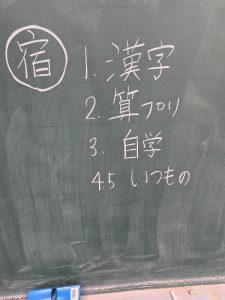 宿 1. 漢字
2. 算プリ
3. 自学
4.5 いつもの